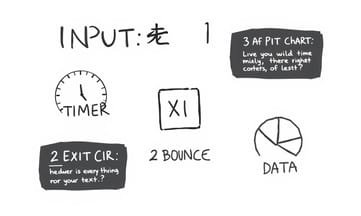 INPUT: 1
3 AF PIT CHART:
Live you wild time
mialy, there righet
corters, of lesst?
TIMER
XI
2 EXIT CIR:
hedwer is every thring
ror your text.?
2 BOUNCE
DATA